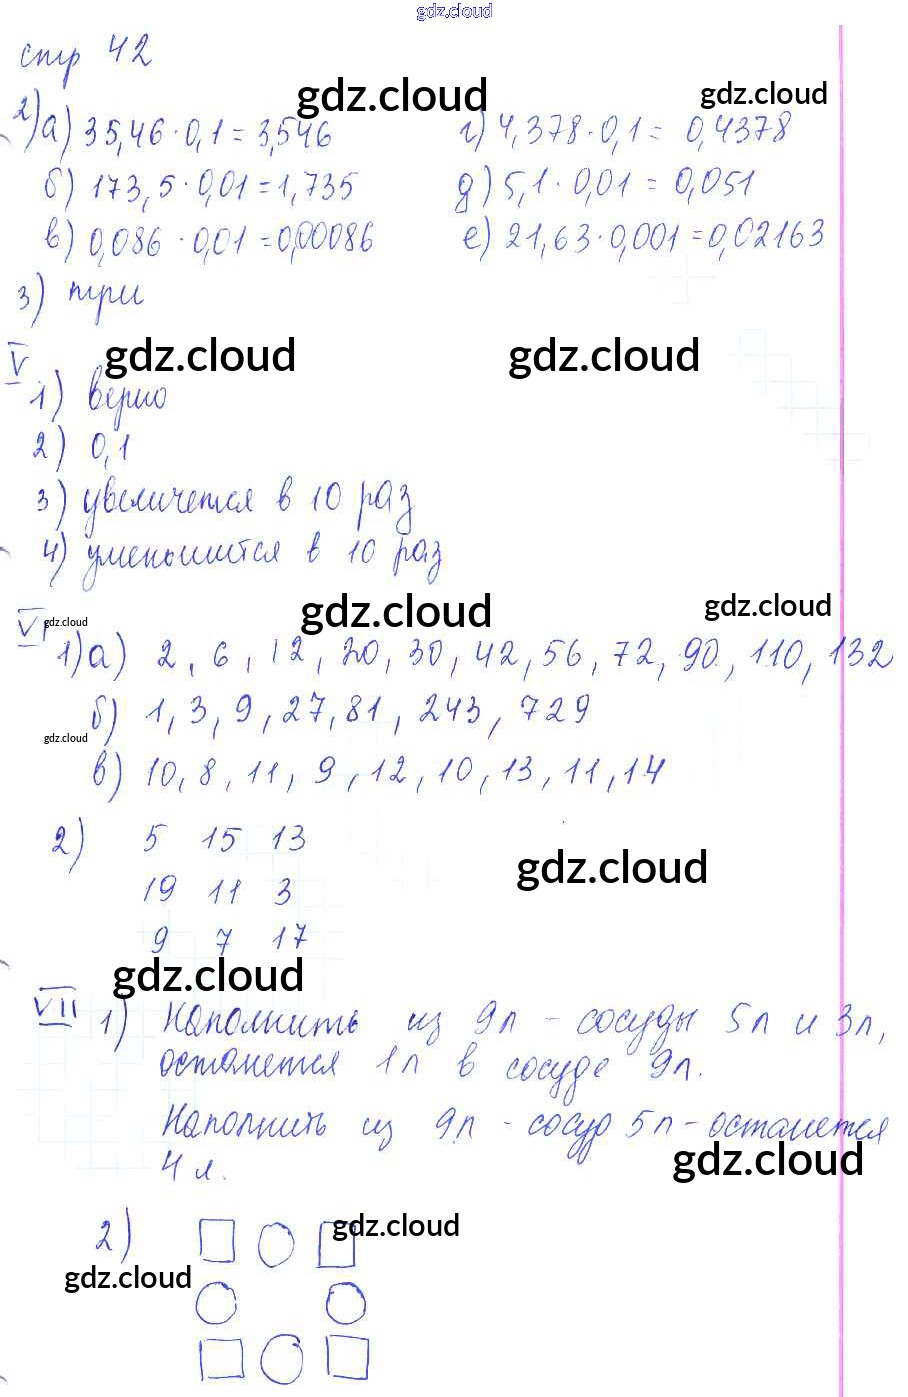 gdz.cloud
стр 42
gdz.cloud gdz.cloud
2) а) 35,46 · 0,1 = 3,546 г) 4,378 · 0,1 = 0,4378
б) 173,5 · 0,01 = 1,735 д) 5,1 · 0,01 = 0,051
в) 0,086 · 0,01 = 0,00086 е) 21,63 · 0,001 = 0,02163
3) три
gdz.cloud gdz.cloud
V
1) верно
2) 0,1
3) увеличется в 10 раз
4) уменьшится в 10 раз
gdz.cloud gdz.cloud
VI gdz.cloud
1) а) 2, 6, 12, 20, 30, 42, 56, 72, 90, 110, 132
б) 1, 3, 9, 27, 81, 243, 729
gdz.cloud
в) 10, 8, 11, 9, 12, 10, 13, 11, 14
2) 5 15 13
gdz.cloud
19 11 3
9 7 17
gdz.cloud
VII 1) Наполнить из 9л - сосуды 5л и 3л,
останется 1л в сосуде 9л.
Наполнить из 9л - сосуд 5л - останется
4л.
gdz.cloud
2)
gdz.cloud
gdz.cloud